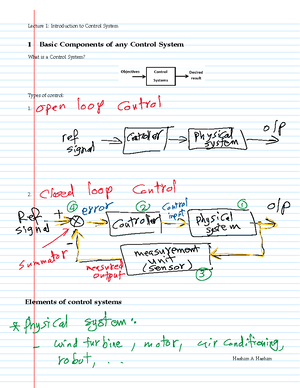 Lecture 1: Introduction to Control System
1 Basic Components of any Control System
What is a Control System?
Objectives
Control
Systems
Desired
result
Types of control:
1. open loop Control
ref
signal
Controller
Physical
system
o/p
2. Closed loop Control
Ref
signal
+
-
④
error
②
Controller
Control
input
①
Physical
system
o/p
summator
measured
output
measurement
unit
(sensor)
③
Elements of control systems
* Physical system:
- wind turbine, motor, air conditioning,
robot, ...
Hashim A Hashim